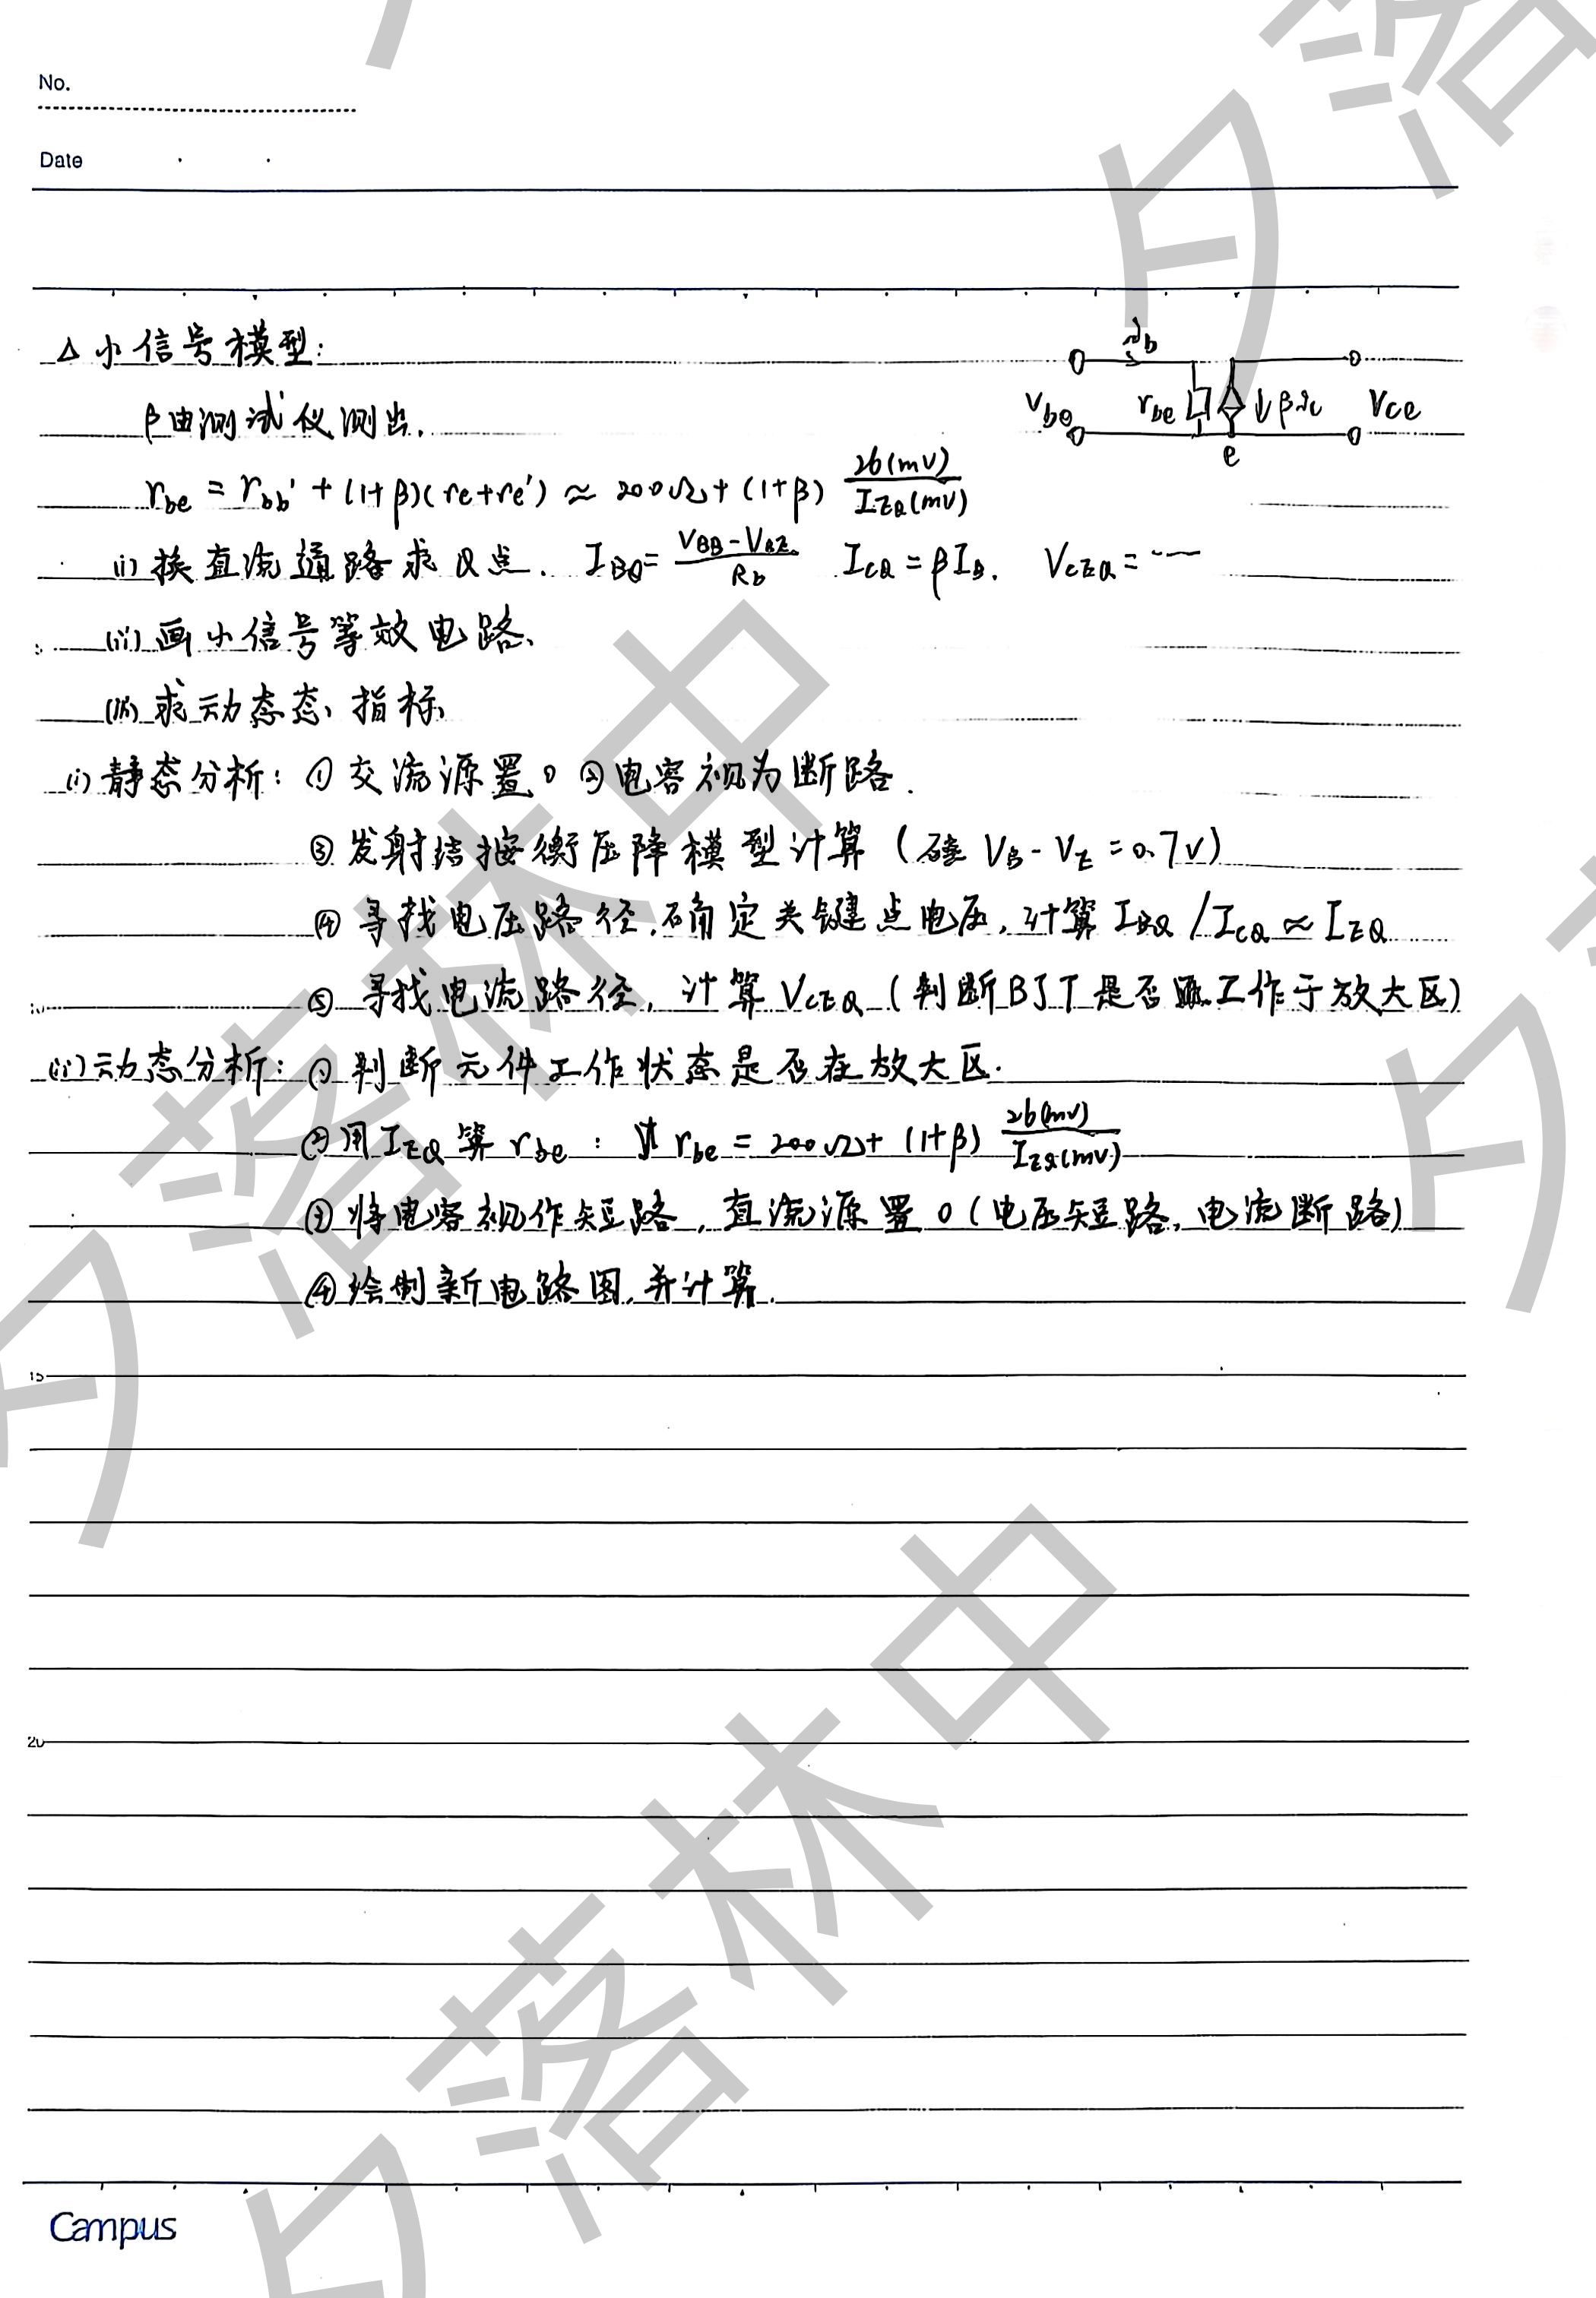 No.
Date
△ 小信号模型:
β由测试仪测出.
r_be = r_bb' + (1+β)(re+re') ≈ 200Ω + (1+β) 26(mV)/I_EQ(mV)
(i) 换直流通路求Q点. I_BQ = (V_BB - V_BE)/R_b I_CQ = βI_B. V_CEQ = ……
(ii) 画小信号等效电路.
(iii) 求动态态指标.
(i) 静态分析: ① 交流源置0 ② 电容视为断路.
③ 发射结按衡压降模型计算 (硅 V_B - V_E = 0.7V)
④ 寻找电压路径, 确定关键点电压, 计算 I_BQ / I_CQ ≈ I_EQ
⑤ 寻找电流路径, 计算 V_CEQ (判断BJT是否工作于放大区)
(ii) 动态分析: ① 判断元件工作状态是否在放大区.
② 用 I_EQ 算 r_be : r_be = 200Ω + (1+β) 26(mV)/I_EQ(mV)
③ 将电容视作短路, 直流源置0 (电压短路, 电流断路)
④ 绘制新电路图, 并计算.
i_b
V_be r_be ↓βi_c V_ce
e
15
20
Campus
夕落林中
夕落林中
夕落
夕